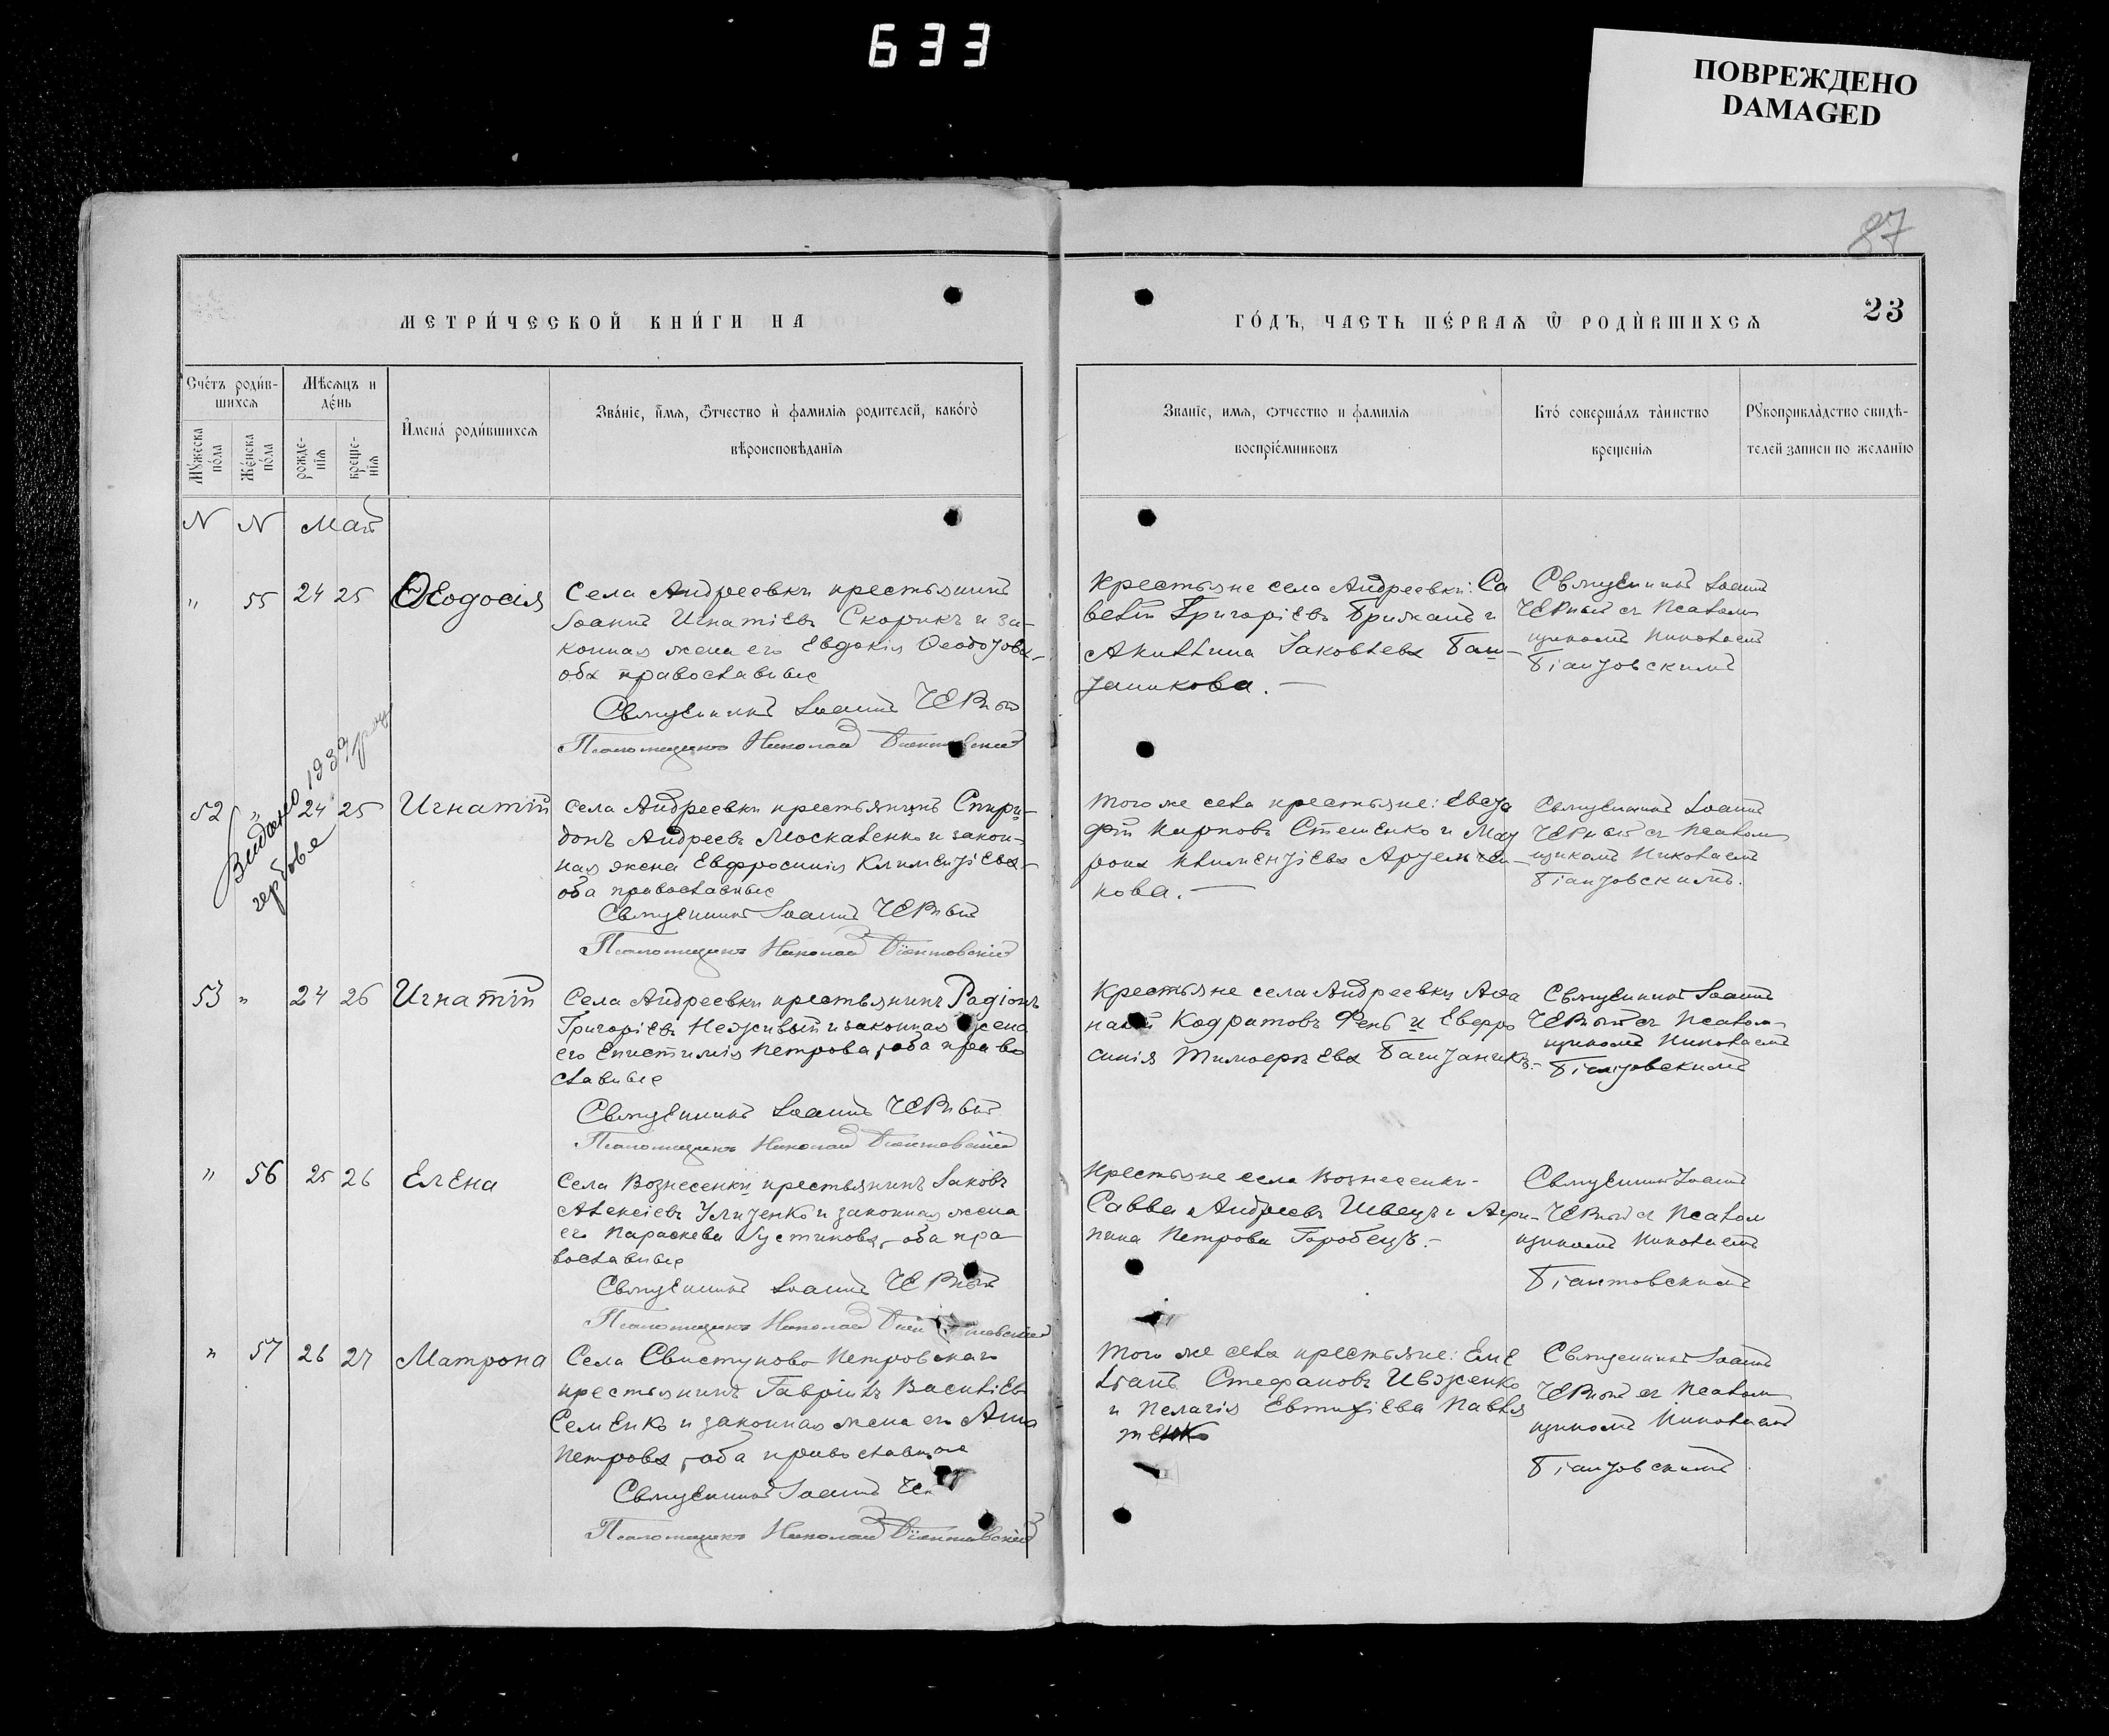 633
ПОВРЕЖДЕНО
DAMAGED
87
23
МЕТРИ́ЧЕСКОЙ КНИ́ГИ НА
ГО́ДЪ, ЧАСТЬ ПЕ́РВАѦ Ѿ РОДИ́ВШИХСѦ
Счéтъ роди́в-
шихсѧ
Мꙋ́жеска
по́ла
Же́нска
по́ла
Мѣ́сѧцъ и
де́нь
рожде-
нїѧ
креще-
нїѧ
И҆мена́ роди́вшихсѧ
Зва́нїе, и҆́мѧ, ѻ҆́тчество и҆ фамилїѧ родителей, како́гѡ
вѣроисповѣданїѧ
Званїе, имѧ, ѻтчество и фамилїѧ
воспрїе́мниковъ
Кто́ соверша́лъ та́инство
крещенїѧ
Рꙋкоприкла́дство свидѣ-
телей записи по желанїю
N N Май
" 55 24 25 Ѳеодосія
Села Андреевки крестьянинъ
Іоаннъ Игнатіевъ Скорикъ и за-
конная жена его Евдокія Ѳеодотова
оба православные
Священникъ Іоаннъ Черный
Псаломщикъ Николай Біантовскій
Крестьяне села Андреевки: Са
велій Григоріевъ Брижанъ и
Акилина Іаковлева Баш-
танникова.—
Священникъ Іоаннъ
Черный съ Псалом
щикомъ Николаемъ
Біантовскимъ
Видано 1939 року
гербове
52 " 24 25 Игнатій
Села Андреевки крестьянинъ Спири-
донъ Андреевъ Москаленко и закон-
ная жена Евфросинія Климентіева
оба православные
Священникъ Іоаннъ Черный
Псаломщикъ Николай Біантовскій
Того же села крестьяне: Евста
фій Карповъ Стешенко и Мат
рона Климентіева Артемчен-
кова.—
Священникъ Іоаннъ
Черный съ Псалом
щикомъ Николаемъ
Біантовскимъ.
53 " 24 26 Игнатій
Села Андреевки крестьянинъ Радіонъ
Григоріевъ Неживый и законная жена
его Епистимія Петрова, оба право
славные
Священникъ Іоаннъ Черный
Псаломщикъ Николай Біантовскій
Крестьяне села Андреевки Аѳа
насій Кодратовъ Фень и Евфро
синія Тимофеева Баштанникъ.-
Священникъ Іоаннъ
Черный съ Псалом-
щикомъ Николаемъ
Біантовскимъ
" 56 25 26 Елена
Села Вознесенки крестьянинъ Іаковъ
Алексіевъ Улитенко и законная жена
его Параскева Іустинова, оба пра
вославные
Священникъ Іоаннъ Черный
Псаломщикъ Николай Біантовскій
Крестьяне села Вознесенки-
Савва Андреевъ Швецъ и Агри-
пина Петрова Горобецъ.-
Священникъ Іоаннъ
Черный съ Псалом
щикомъ Николаемъ
Біантовскимъ
" 57 26 27 Матрона
Села Свистуново Петровскаго
крестьянинъ Гавріилъ Василіевъ
Семенко и законная жена его Анна
Петрова, оба православные
Священникъ Іоаннъ Че
Псаломщикъ Николай Біантовскій
Того же села крестьяне: Еме
ліанъ Стефановъ Ивженко
и Пелагія Евтихіева Павля
тенко
Священникъ Іоаннъ
Черный съ Псалом
щикомъ Николаемъ
Біантовскимъ